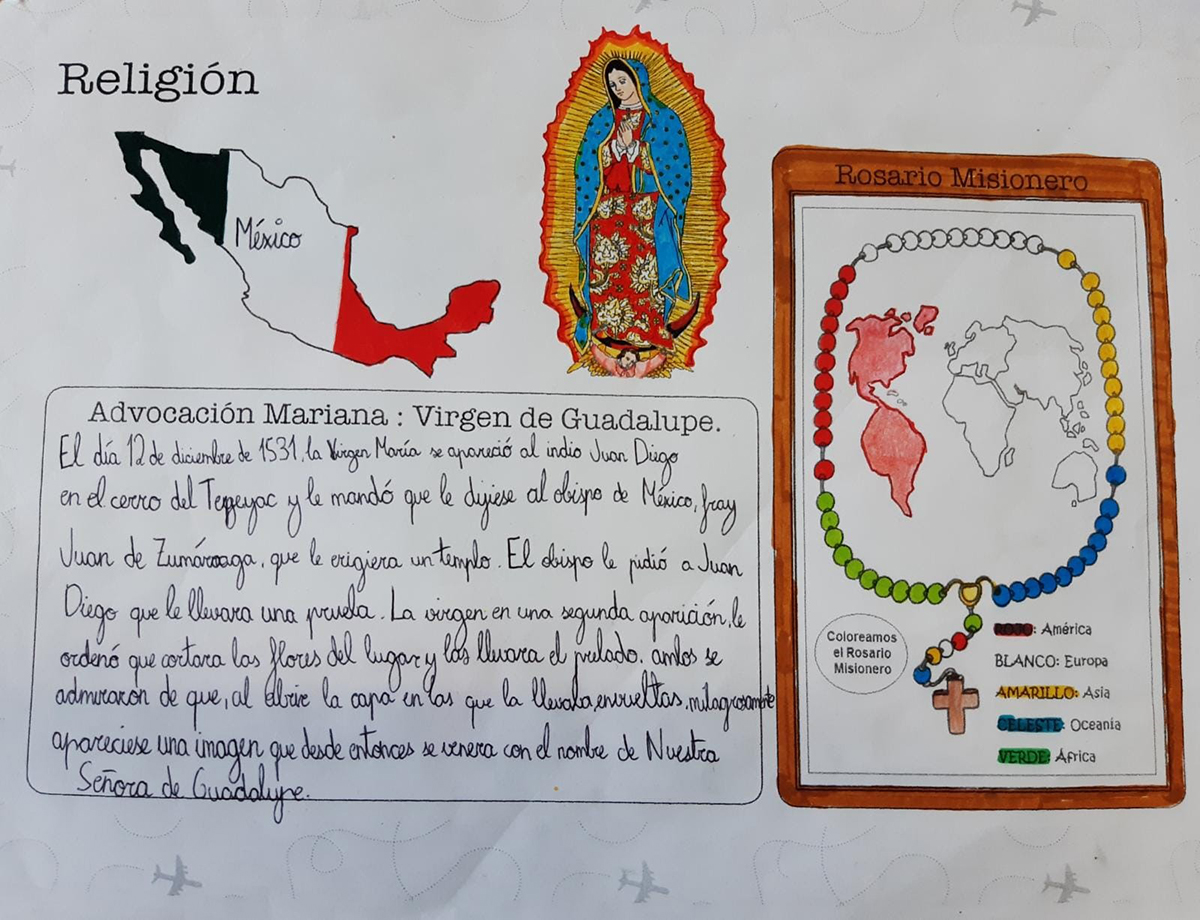 Religión
México
Advocación Mariana : Virgen de Guadalupe.
El día 12 de diciembre de 1531, la Virgen María se apareció al indio Juan Diego
en el cerro del Tepeyac y le mandó que le dijiese al obispo de México, fray
Juan de Zumárraga, que le erigiera un templo. El obispo le pidió a Juan
Diego que le llevara una prueba. La virgen en una segunda aparición, le
ordenó que cortara las flores del lugar y las llevara el prelado. ambos se
admiraron de que, al abrir la capa en las que la llevaba envueltas, milagrosamente
apareciese una imagen que desde entonces se venera con el nombre de Nuestra
Señora de Guadalupe.
Rosario Misionero
Coloreamos
el Rosario
Misionero
ROJO: América
BLANCO: Europa
AMARILLO: Asia
CELESTE: Oceanía
VERDE: África